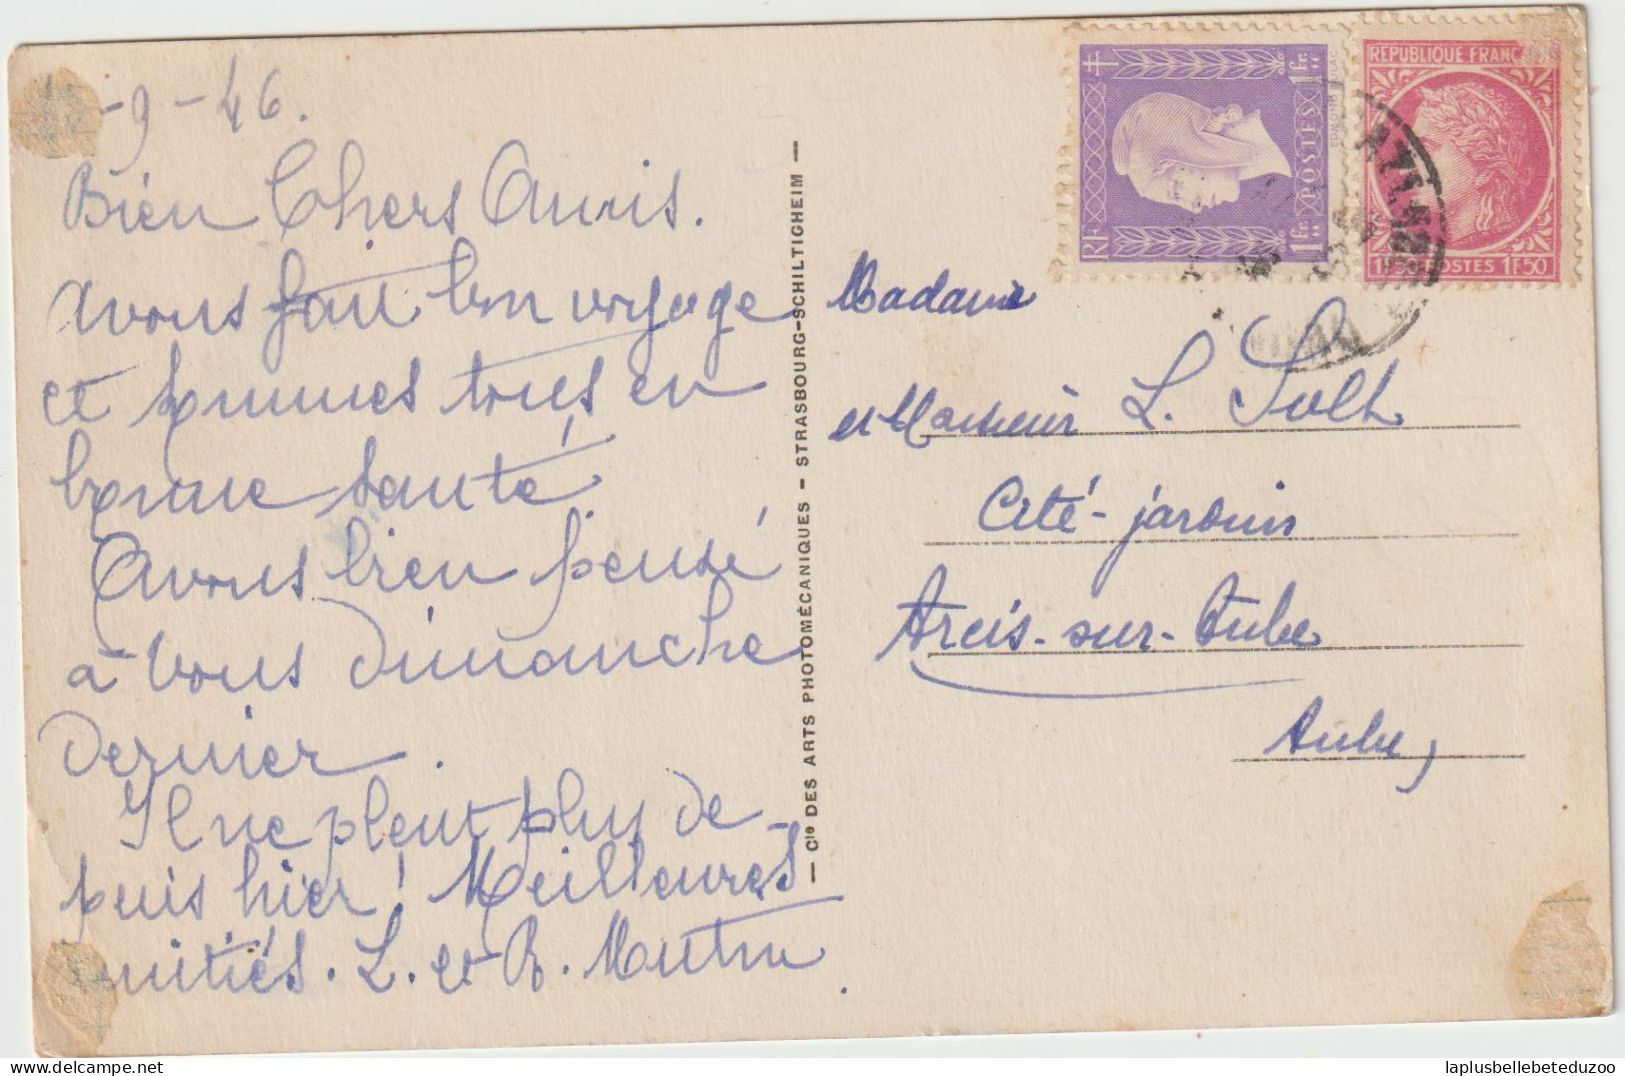 -9-46.
Bien Chers Amis.
avons fait bon voyage
et sommes tous en
bonne santé.
Avons bien pensé
à vous dimanche
dernier.
Il ne pleut plus de-
puis hier! Meilleures
amitiés. L. et R.
Cie DES ARTS PHOTOMÉCANIQUES - STRASBOURG-SCHILTIGHEIM
RF
1fr.
POSTES
1fr.
RÉPUBLIQUE FRANÇAISE
POSTES 1F50
Madame
et Monsieur L.
Cité-jardin
Arcis-sur-Aube
Aube,
laplusbellebeteduzoo